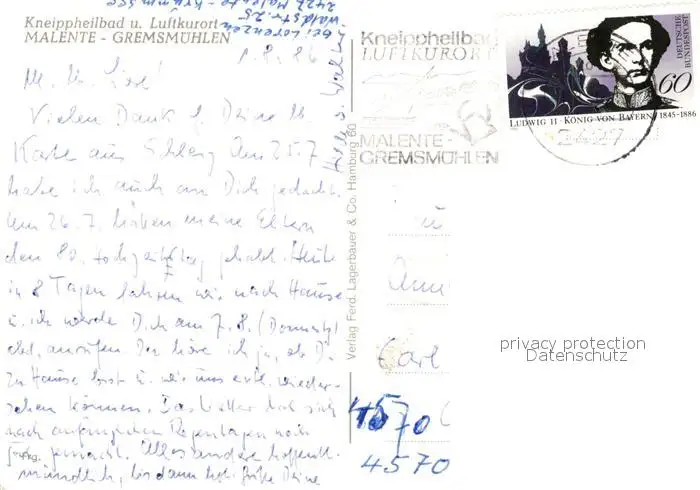 2427 Malente - Krummsee
Waldstr. 25
bei Lorenzen
Kneippheilbad u. Luftkurort
MALENTE - GREMSMÜHLEN
1.8.86
Vielen Dank f. Deine lb.
Karte aus Am 25.7
habe ich auch an Dich gedacht.
Am 26.7. haben meine Eltern
den 80. Hochzeitstag gehabt. Heute
in 8 Tagen fahren wir nach Hause
u. ich werde Dich am 7.8. (Donnerstag)
anrufen. Dann höre ich ja, ob Du
zu Hause bist u. wir uns evtl. wieder-
sehen können. Das Wetter hat sich
nach anfänglichen Regentagen noch
gemacht. Alles andere hoffentl.
mündlich, bis dann Grüße Deine
Verlag Ferd. Lagerbauer & Co. Hamburg 60
Kneippheilbad
LUFTKURORT
MALENTE-
GREMSMÜHLEN
2427
DEUTSCHE
BUNDESPOST
60
LUDWIG II · KÖNIG VON BAYERN 1845-1886
Carl
4570
4570
privacy protection
Datenschutz